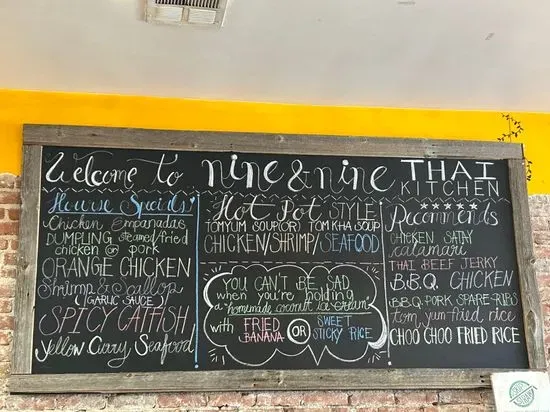 Welcome to nine & nine THAI KITCHEN
House Specials
Chicken Empanadas
DUMPLING steamed/fried
chicken or pork
ORANGE CHICKEN
Shrimp & Scallop
(GARLIC SAUCE)
SPICY CATFISH
Yellow Curry Seafood
Hot Pot STYLE
TOMYUM SOUP (OR) TOM KHA SOUP
CHICKEN/SHRIMP/SEAFOOD
YOU CAN'T BE SAD
when you're holding
a homemade coconut ice cream
with FRIED BANANA OR SWEET STICKY RICE
Recommends
CHICKEN SATAY
calamari
THAI BEEF JERKY
B.B.Q. CHICKEN
B.B.Q. PORK SPARE-RIBS
tom yum fried rice
CHOO CHOO FRIED RICE